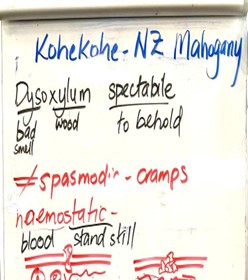 Kohekohe - NZ Mahogany
Dysoxylum spectabile
bad wood to behold
smell
≠ spasmodic - cramps
haemostatic -
blood stand still